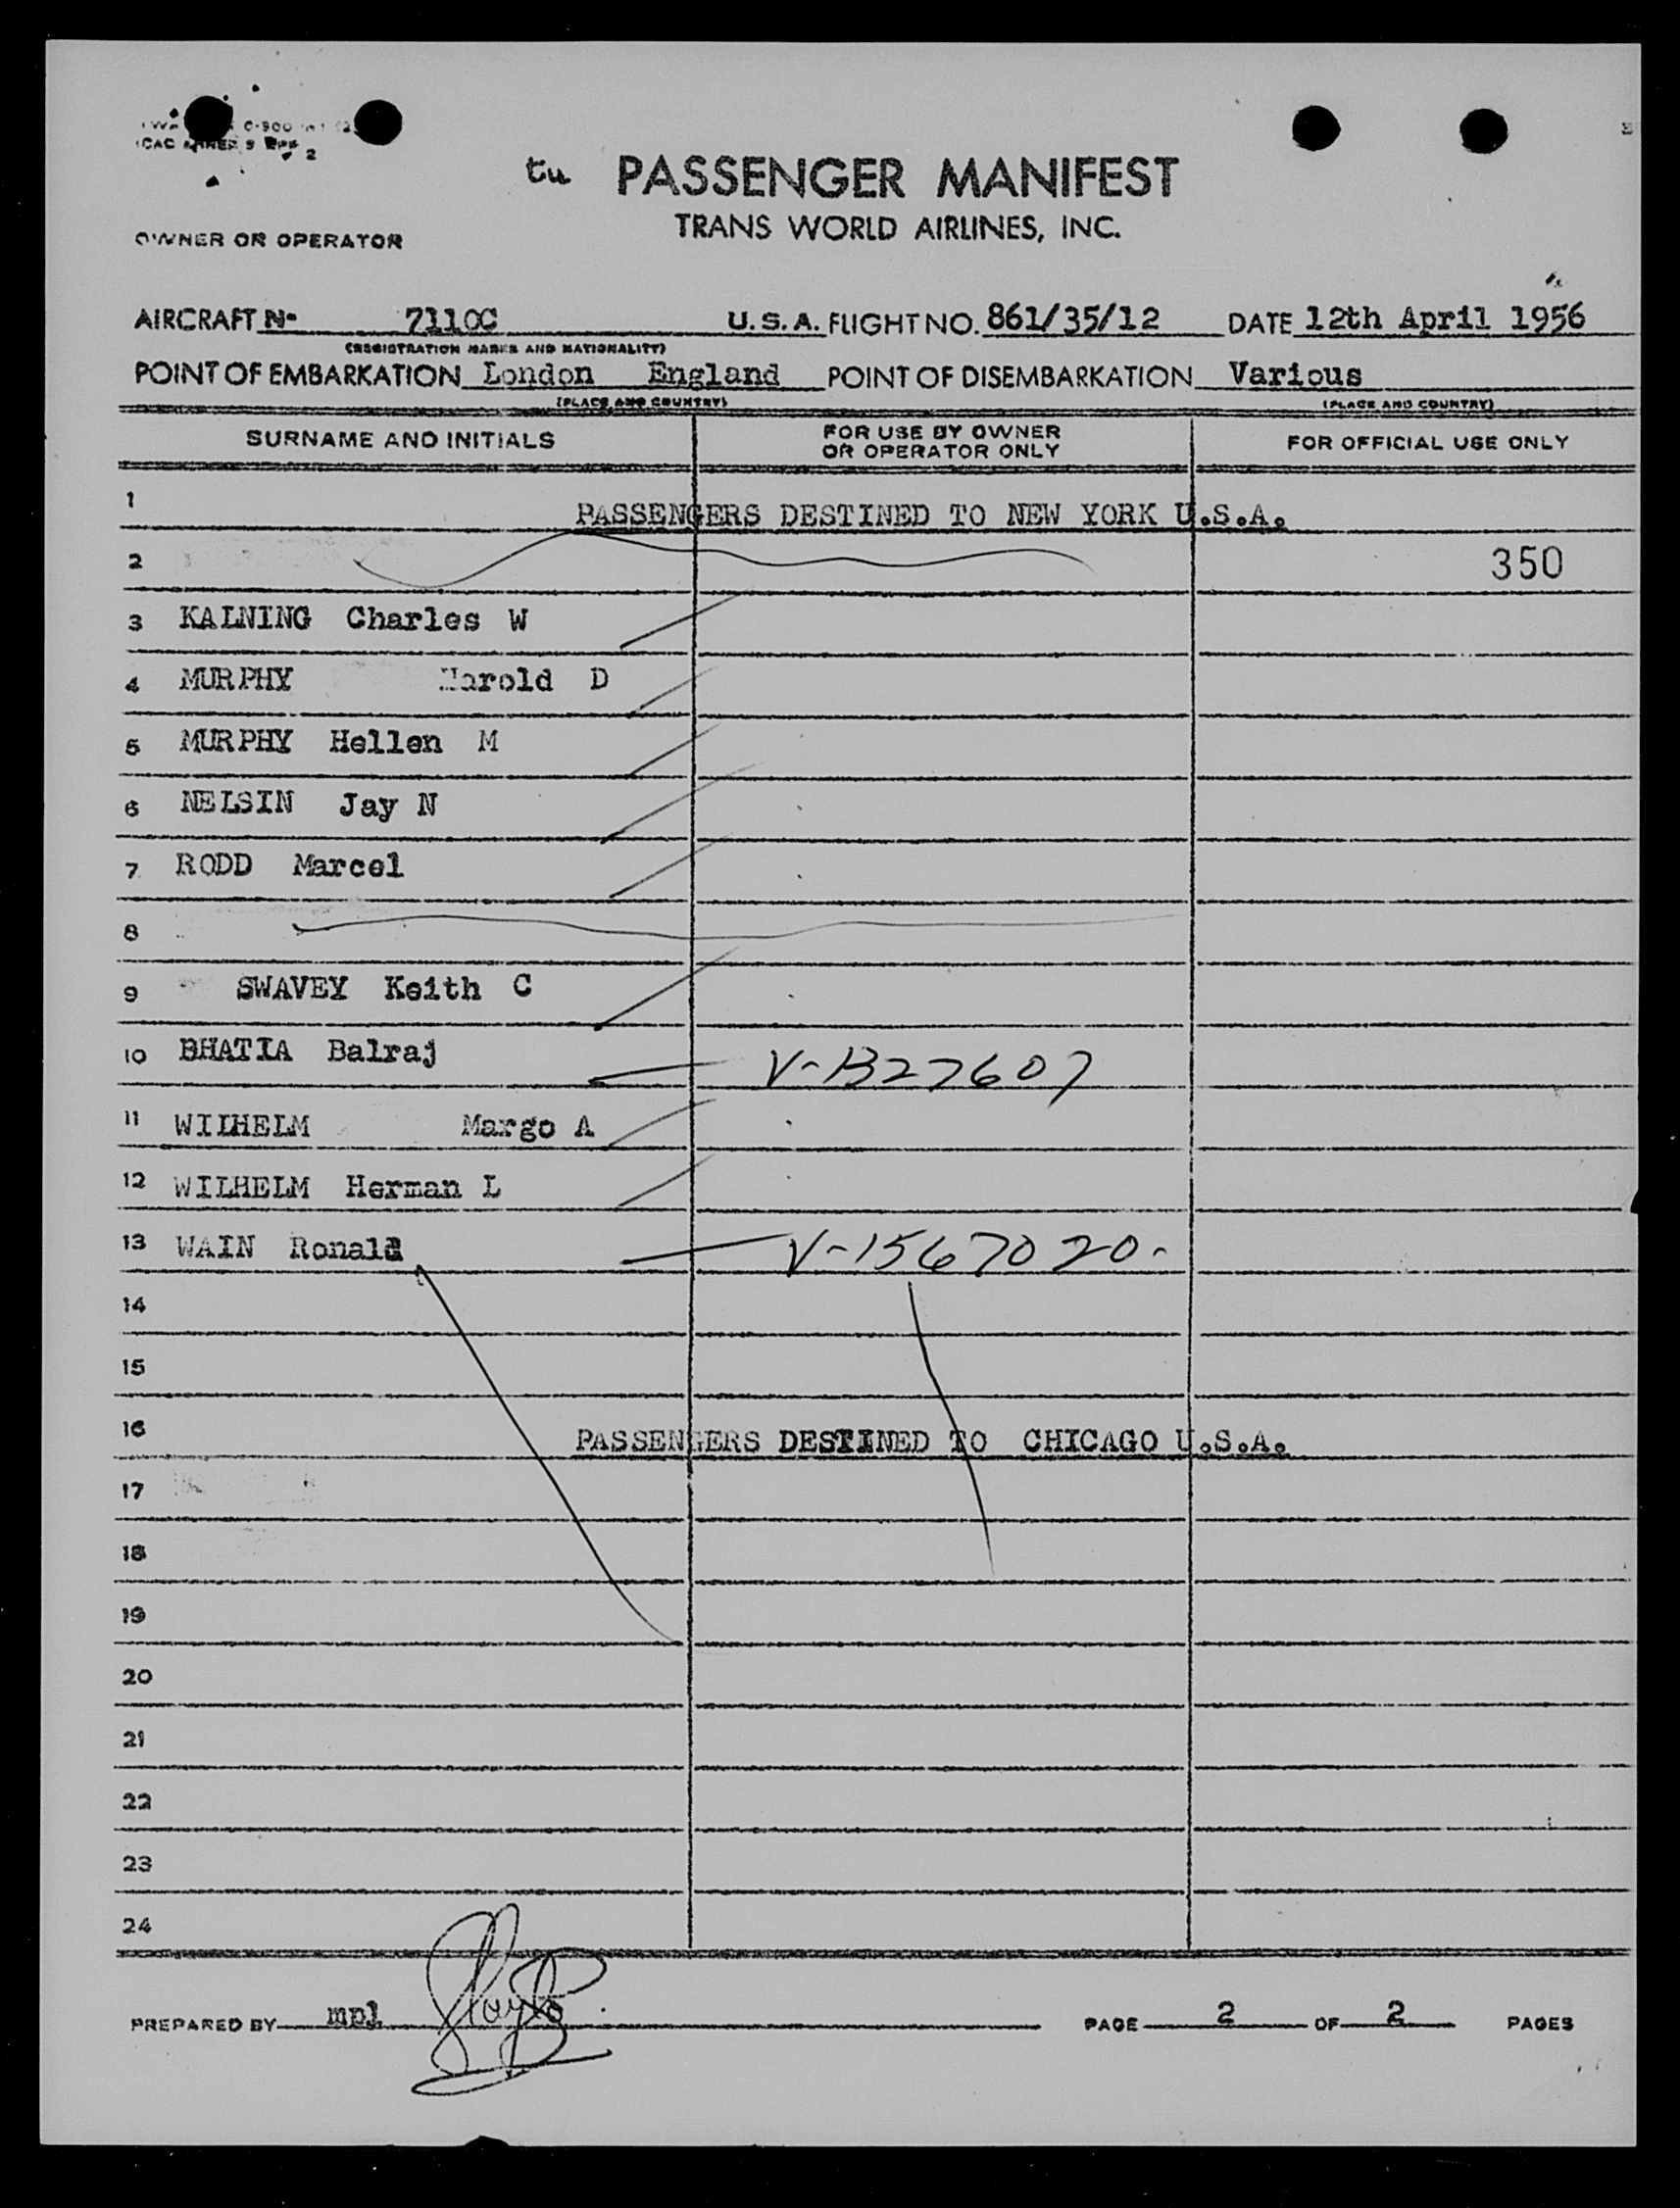 PASSENGER MANIFEST
TRANS WORLD AIRLINES, INC.
OWNER OR OPERATOR
AIRCRAFT N- 7110C U.S.A. FLIGHT NO. 861/35/12 DATE 12th April 1956
(REGISTRATION MARKS AND NATIONALITY)
POINT OF EMBARKATION London England POINT OF DISEMBARKATION Various
(PLACE AND COUNTRY) (PLACE AND COUNTRY)
SURNAME AND INITIALS FOR USE BY OWNER OR OPERATOR ONLY FOR OFFICIAL USE ONLY
1 PASSENGERS DESTINED TO NEW YORK U.S.A.
2 350
3 KALNING Charles W
4 MURPHY Harold D
5 MURPHY Hellen M
6 NELSIN Jay N
7 RODD Marcel
8
9 SWAVEY Keith C
10 BHATIA Balraj V-B27607
11 WILHELM Margo A
12 WILHELM Herman L
13 WAIN Ronald V-1567020-
14
15
16 PASSENGERS DESTINED TO CHICAGO U.S.A.
17
18
19
20
21
22
23
24
PREPARED BY mpl PAGE 2 OF 2 PAGES